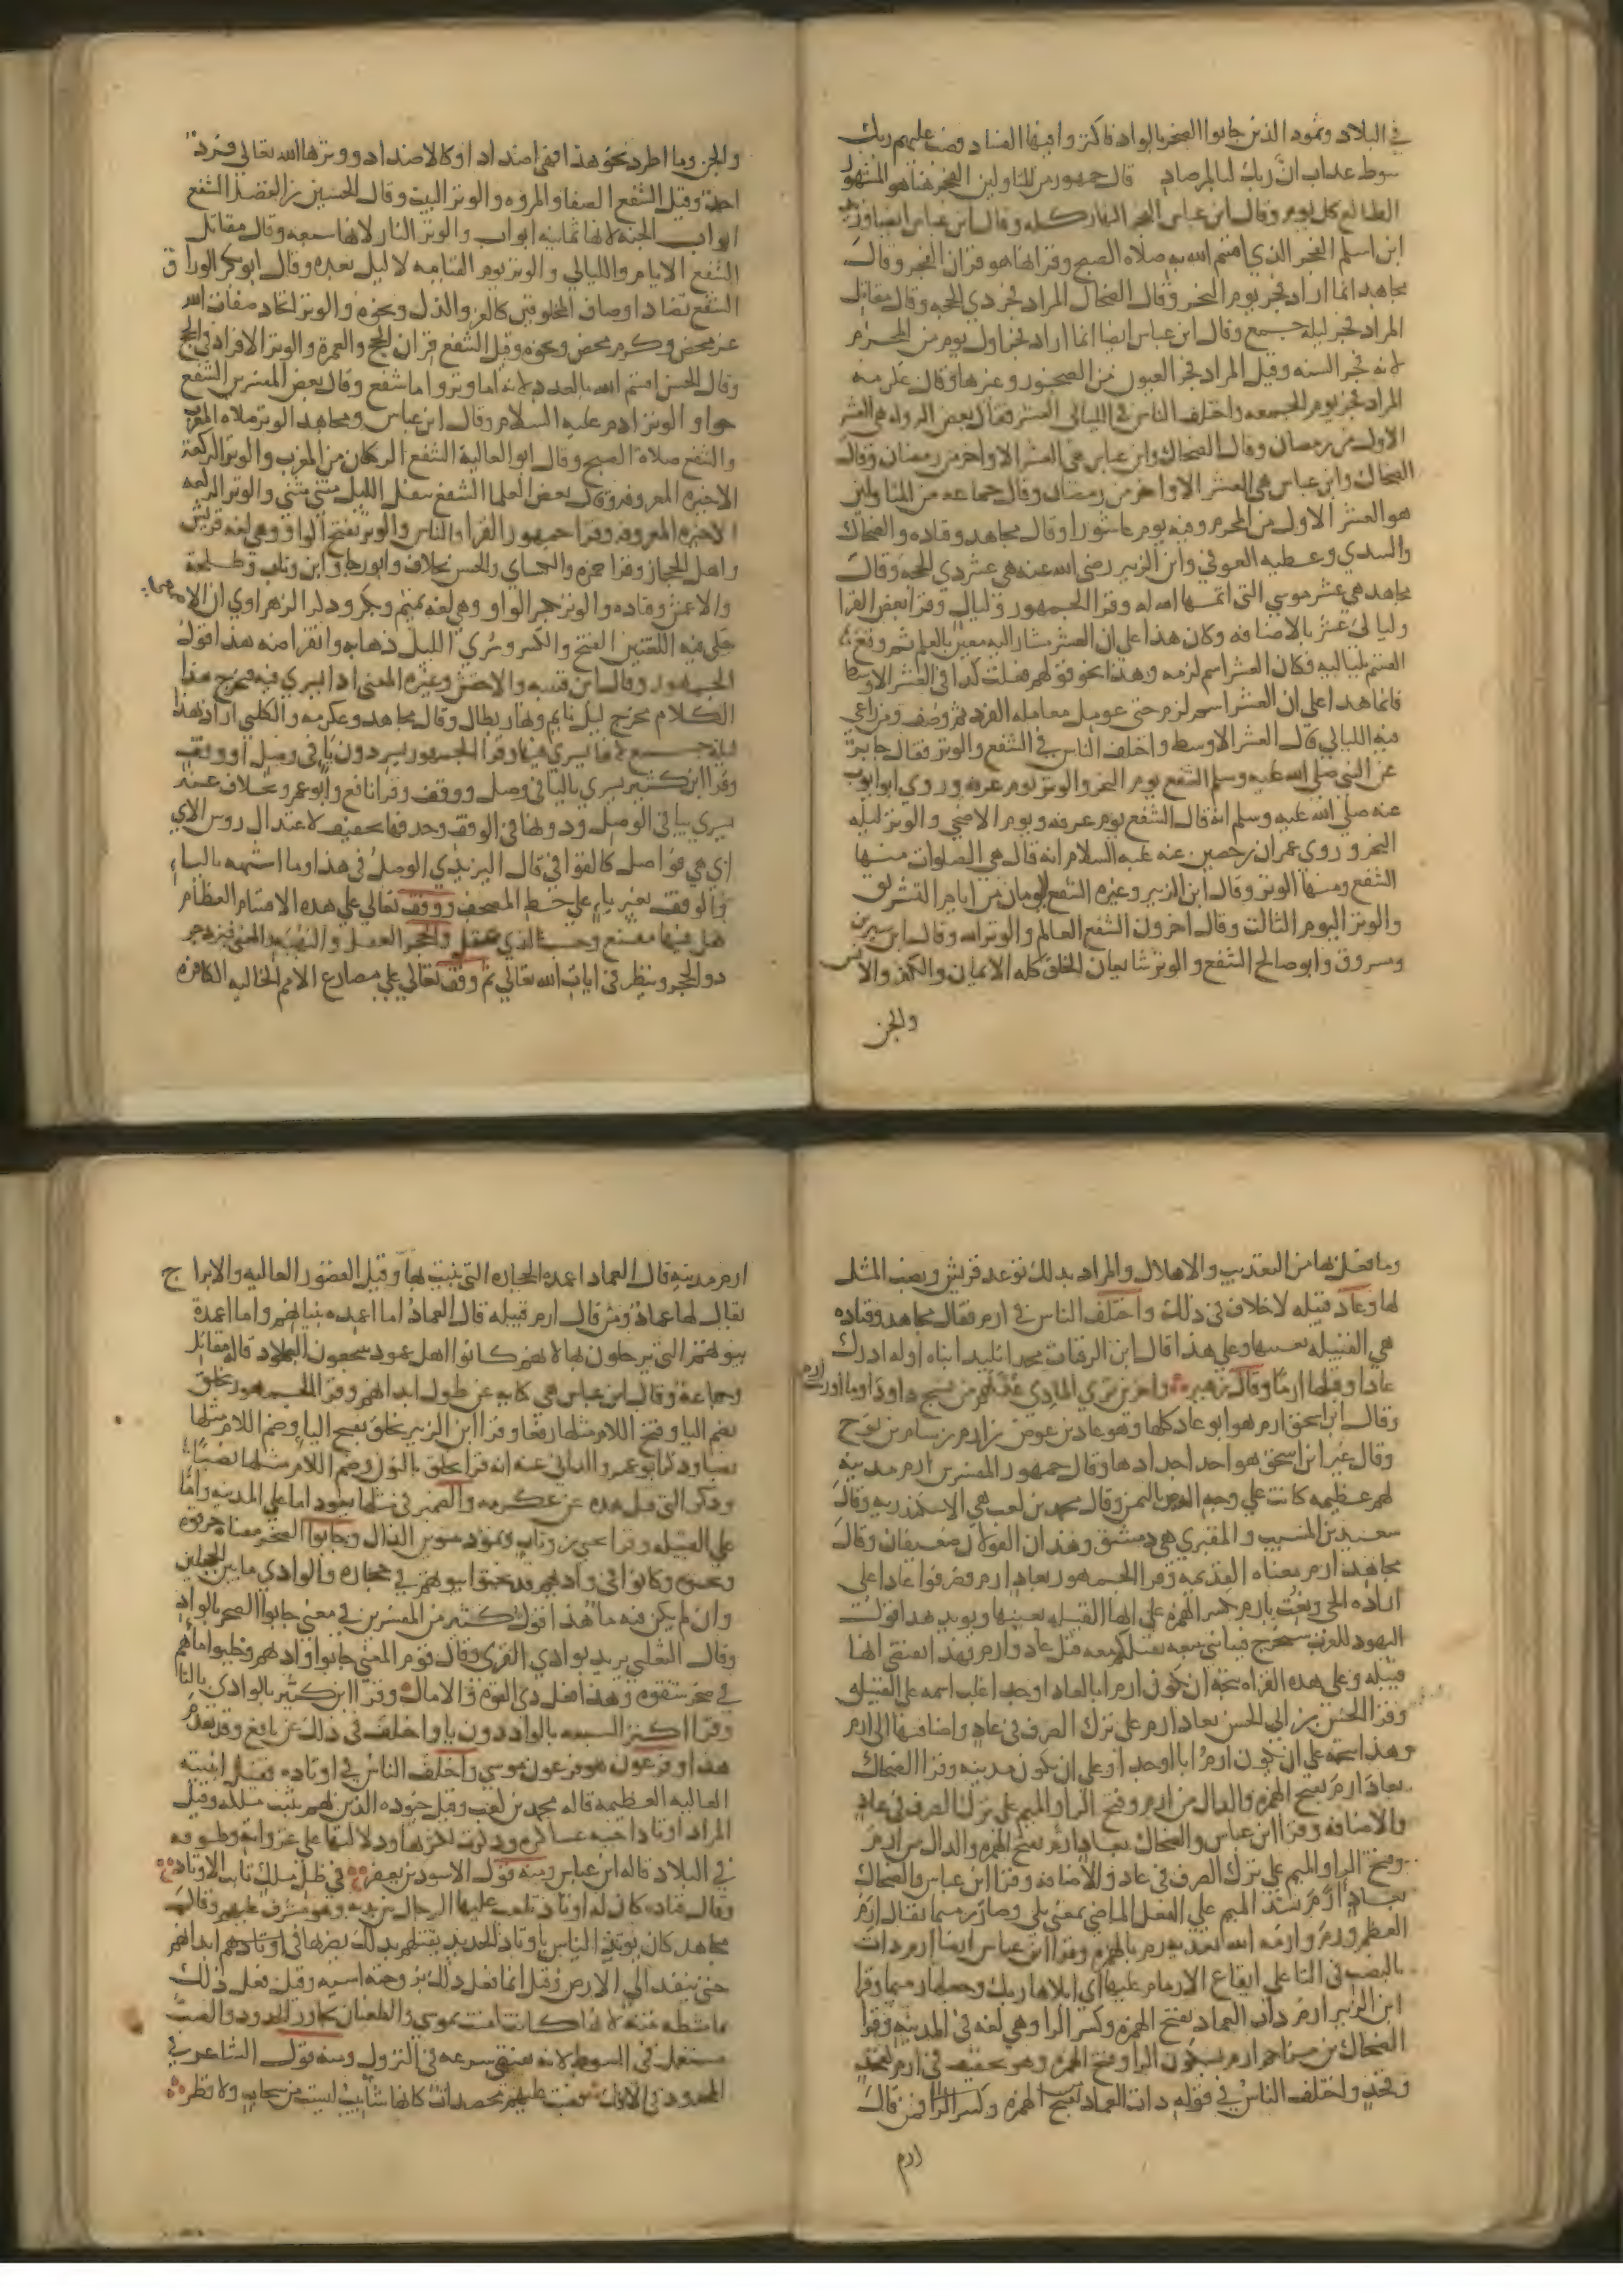 في البلاد وثمود الذين جابوا الصخر بالواد فاكثروا فيها الفساد فصب عليهم ربك
سوط عذاب ان ربك لبالمرصاد قال جمهور من المتاولين الفجر هنا هو المشهور
الطالع كل يوم وقال ابن عباس الفجر النهار كله وقال ابن عباس ايضا وزيد
ابن اسلم الفجر الذي اقسم الله به صلاة الصبح وقرانها هو قران الفجر وقال
مجاهد انما اراد فجر يوم النحر وقال الضحاك المراد فجر ذي الحجه وقال مقاتل
المراد فجر ليلة جمع وقال ابن عباس ايضا انما اراد فجر اول يوم من المحرم
لانه فجر السنه وقيل المراد فجر العيون من الصخور وغيرها وقال عكرمه
المراد فجر يوم الجمعه واختلف الناس في الليالي العشر فقال بعض الرواه هي العشر
الاول من رمضان وقال الضحاك وابن عباس هي العشر الاواخر من رمضان وقال
الضحاك وابن عباس هي العشر الاواخر من رمضان وقال جماعه من المتاولين
هو العشر الاول من المحرم وفيه يوم عاشورا وقال مجاهد وقتاده والضحاك
والسدي وعطيه العوفي وابن الزبير رضي الله عنه هي عشر ذي الحجه وقال
مجاهد هي عشر موسى التي اتمها الله له وقرا الجمهور وليال وقرا بعض القرا
وليالي عشر بالاضافه وكان هذا على ان العشر مشار اليه معين بالعلم ثم وقع
القسم بلياليه فكان العشر اسم لزمه وهذا نحو قولهم فعلت كذا في العشر الاوسط
فانما هذا على ان العشر اسم لزم حتى عومل معامله الفرد ثم وصف ومن راعى
فيه الليالي قال العشر الاوسط واختلف الناس في الشفع والوتر فقال جابر
عن النبي صلى الله عليه وسلم الشفع يوم النحر والوتر يوم عرفه وروى ابو ايوب
عنه صلى الله عليه وسلم انه قال الشفع يوم عرفه ويوم الاضحى والوتر ليله
النحر وروى عمران بن حصين عنه عليه السلام انه قال هي الصلوات منها
الشفع ومنها الوتر وقال ابن الزبير وغيره الشفع اليومان من ايام التشريق
والوتر اليوم الثالث وقال اخرون الشفع العالم والوتر الله وقال ابن سيرين
ومسروق وابو صالح الشفع والوتر شائعان الخلق كله الايمان والكفر والانس
والجن
والجن وما اطرد نحو هذا فهي اضداد او كالاضداد ووترها الله تعالى فرد
احد وقيل الشفع الصفا والمروه والوتر البيت وقال الحسين بن الفضل الشفع
ابواب الجنه لانها ثمانيه ابواب والوتر النار لانها سبعه وقال مقاتل
الشفع الايام والليالي والوتر يوم القيامه لا ليل بعده وقال ابو بكر الوراق
الشفع تضاد اوصاف المخلوقين كالعز والذل ونحوه والوتر اتحاد صفات الله
عز محض وكرم محض ونحوه وقيل الشفع قران الحج والعمرة والوتر الافراد في الحج
وقال الحسن اقسم الله بالعدد لانه اما وتر واما شفع وقال بعض المفسرين الشفع
حوا والوتر ادم عليه السلام وقال ابن عباس ومجاهد الوتر صلاه المغرب
والشفع صلاة الصبح وقال ابو العالية الشفع الركعتان من المغرب والوتر الركعة
الاخيره المعروفه وقال بعض العلما الشفع تنفل الليل مثنى مثنى والوتر الركعه
الاخيره المعروفه وقرا جمهور القرا والناس والوتر بفتح الواو وهي لغه قريش
واهل الحجاز وقرا حمزه والكساي والحسن بخلاف وابو رجا وابن وثاب وطلحة
والاعمش وقتاده والوتر بكسر الواو وهي لغه تميم وبكر وذكر الزهراوي ان الاصمعي
حكى فيه اللغتين الفتح والكسر وسري الليل ذهابه وانقراضه هذا قول
الجمهور وقال ابن قتيبه والاخفش وغيره المعنى اذا يسري فيه فيخرج هذا
الكلام مخرج ليل نايم ونهار بطال وقال مجاهد وعكرمه والكلبي اراد بهذا
ليلة جمع لانه يسرى فيها وقرا الجمهور يسر دون يا في وصل ووقف
وقرا ابن كثير يسري باليا في وصل ووقف وقرا نافع وابو عمرو بخلاف عنه
يسري بيا في الوصل ودونها في الوقف وحذفها تخفيف لاعتدال روس الاي
اذ هي فواصل كالقوافي قال اليزيدي الوصل في هذا وما اشبهه بالياء
والوقف بغير ياء على خط المصحف ووقف تعالى على هذه الاقسام العظام
هل فيها مقنع وحسب لذي عقل والحجر العقل والنهيه والمعنى فيزدجر
ذو الحجر وينظر في ايات الله تعالى ثم وقف تعالى على مصارع الامم الخاليه الكافره
وما فعل بها من التعذيب والاهلاك والمراد بذلك توعد قريش ونصب المثل
لها وعاد قبيله لا خلاف في ذلك واختلف الناس في ارم فقال مجاهد وقتاده
هي القبيله بعينها وعلى هذا قال ابن الرقيات مجدا تليدا بناه اوله ادرك
عادا وقبلها ارما وقال زهير واخرين ترى الماذي عدتهم من نسج داود او ما اورثت ارم
وقال ابن اسحق ارم هو ابو عاد كلها وهو عاد بن عوص بن ارم بن سام بن نوح
وقال غير ابن اسحق هو احد اجدادها وقال جمهور المفسرين ارم مدينه
لهم عظيمه كانت على وجه الدهر باليمن وقال محمد بن كعب هي الاسكندريه وقال
سعيد بن المسيب والمقبري هي دمشق وهذان القولان ضعيفان وقال
مجاهد ارم معناه القديمه وقرا الجمهور بعاد ارم فصرفوا عادا على
اراده الحي ونعت بارم بكسر الهمزه على انها القبيله بعينها ويويد هذا قول
اليهود للعرب سيخرج فينا نبي نتبعه نقتلكم معه قتل عاد وارم فهذا يقتضي انها
قبيله وعلى هذه القراه يتجه ان يكون ارم ابا لعاد او جدا غلب اسمه على القبيله
وقرا الحسن بن ابي الحسن بعاد ارم على ترك الصرف في عاد واضافتها الى ارم
وهذا يتجه على ان يكون ارم ابا او جدا وعلى ان يكون مدينه وقرا الضحاك
بعاد ارم بفتح الهمزه والدال من ارم وفتح الرا والميم على ترك الصرف في عاد
والاضافه وقرا ابن عباس والضحاك بعاد ارم بفتح الهمزه والدال من ارم
وفتح الرا والميم على ترك الصرف في عاد والاضافه وقرا ابن عباس والضحاك
بعاد ارم بشد الميم على الفعل الماضي بمعنى بلي وصار رميما يقال ارم
العظم ورم وارمه الله تعديه رم بالهمزه وقرا ابن عباس ايضا ارم ذات
بالنصب في التا على ايقاع الارمام عليها اي ابلاها ربك وجعلها رميما وقرا
ابن الزبير ارم ذات العماد بفتح الهمزه وكسر الرا وهي لغه في المدينه وقرا
الضحاك بن مزاحم ارم بسكون الرا وفتح الهمزه وهو تخفيف في ارم كفخذ
وفخذ واختلف الناس في قوله ذات العماد بفتح الهمزه وكسر الرا فمن قال
ارم
ارم مدينه قال العماد اعمده الحجاره التي بنيت بها وقيل القصور العاليه والابراج
يقال لها عماد ومن قال ارم قبيله قال العماد اما اعمده بنيانهم واما اعمدة
بيوتهم التي يرحلون بها لانهم كانوا اهل عمود ينتجعون البلاد قاله مقاتل
وجماعة وقال ابن عباس هي كنايه عن طول ابدانهم وقرا الجمهور يخلق
بضم اليا وفتح اللام مثلها رفعا وقرا ابن الزبير يخلق بفتح اليا وضم اللام مثلها
نصبا وذكر ابو عمرو الداني عنه انه قرا نخلق بالنون وضم اللام مثلها نصبا
وذكر التي قبل هذه عن عكرمه والضمير في مثلها يعود اما على المدينه واما
على القبيله وقرا يحيى بن وثاب وثمود بتنوين الدال وجابوا الصخر معناه خرقوه
ونحتوه وكانوا في واديهم قد نحتوا بيوتهم في حجاره والوادي ما بين الجبلين
وان لم يكن فيه ما هذا قول كثير من المفسرين في معنى جابوا الصخر بالواد
وقال الثعلبي يريد بوادي القرى وقال قوم المعنى جابوا واديهم وجلبوا ماهم
في صخر شقوه وهذا فعل ذي القوه والامال وقرا ابن كثير بالوادي باليا
وقرا اكثر السبعه بالواد دون يا واختلف في ذلك عن نافع وقد تقدم
هذا وفرعون هو فرعون موسى واختلف الناس في اوتاده فقيل ابنيته
العاليه العظيمه قاله محمد بن كعب وقيل جنوده الذين بهم يثبت ملكه وقيل
المراد اوتاد اخبيه عساكره وذكرت لكثرتها ودلالتها على غزواته وطوفه
في البلاد قاله ابن عباس ومنه قول الاسود بن يعفر في ظل ملك ثابت الاوتاد
وقال قتاده كان له اوتاد يلعب عليها الرجال بين يديه وهو مشرف عليهم وقال
مجاهد كان يوتد الناس باوتاد الحديد يقتلهم بذلك يضربها في اوتادهم ابدانهم
حتى تنفذ الى الارض وقيل انما فعل ذلك بزوجته اسيه وقيل فعل ذلك
بماشطه ابنته لانها كانت امنت بموسى والطغيان تجاوز الحدود والصب
مستعمل في السوط لانه يقتضي سرعه في النزول ومنه قول الشاعر في
المحدود في الافك فصبت عليهم محصدات كانها شابيب ليست من سحاب ولا قطر